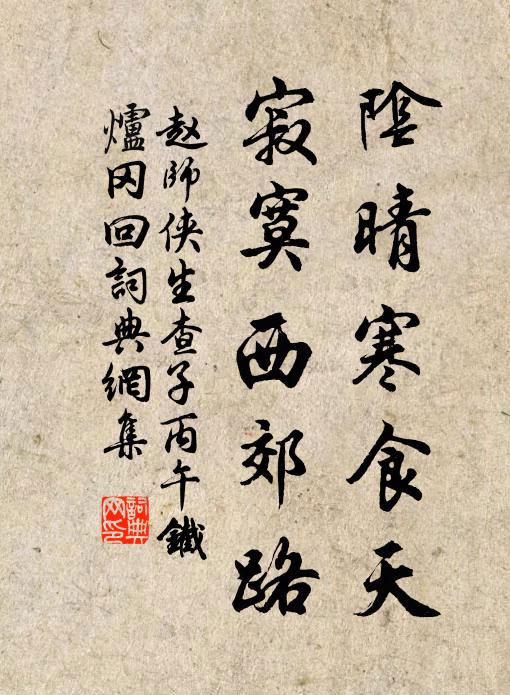 陰晴寒食天
寂寞西郊路
赵師侠生查子丙午鐵
爐冈回詞典網集
詞典
网印